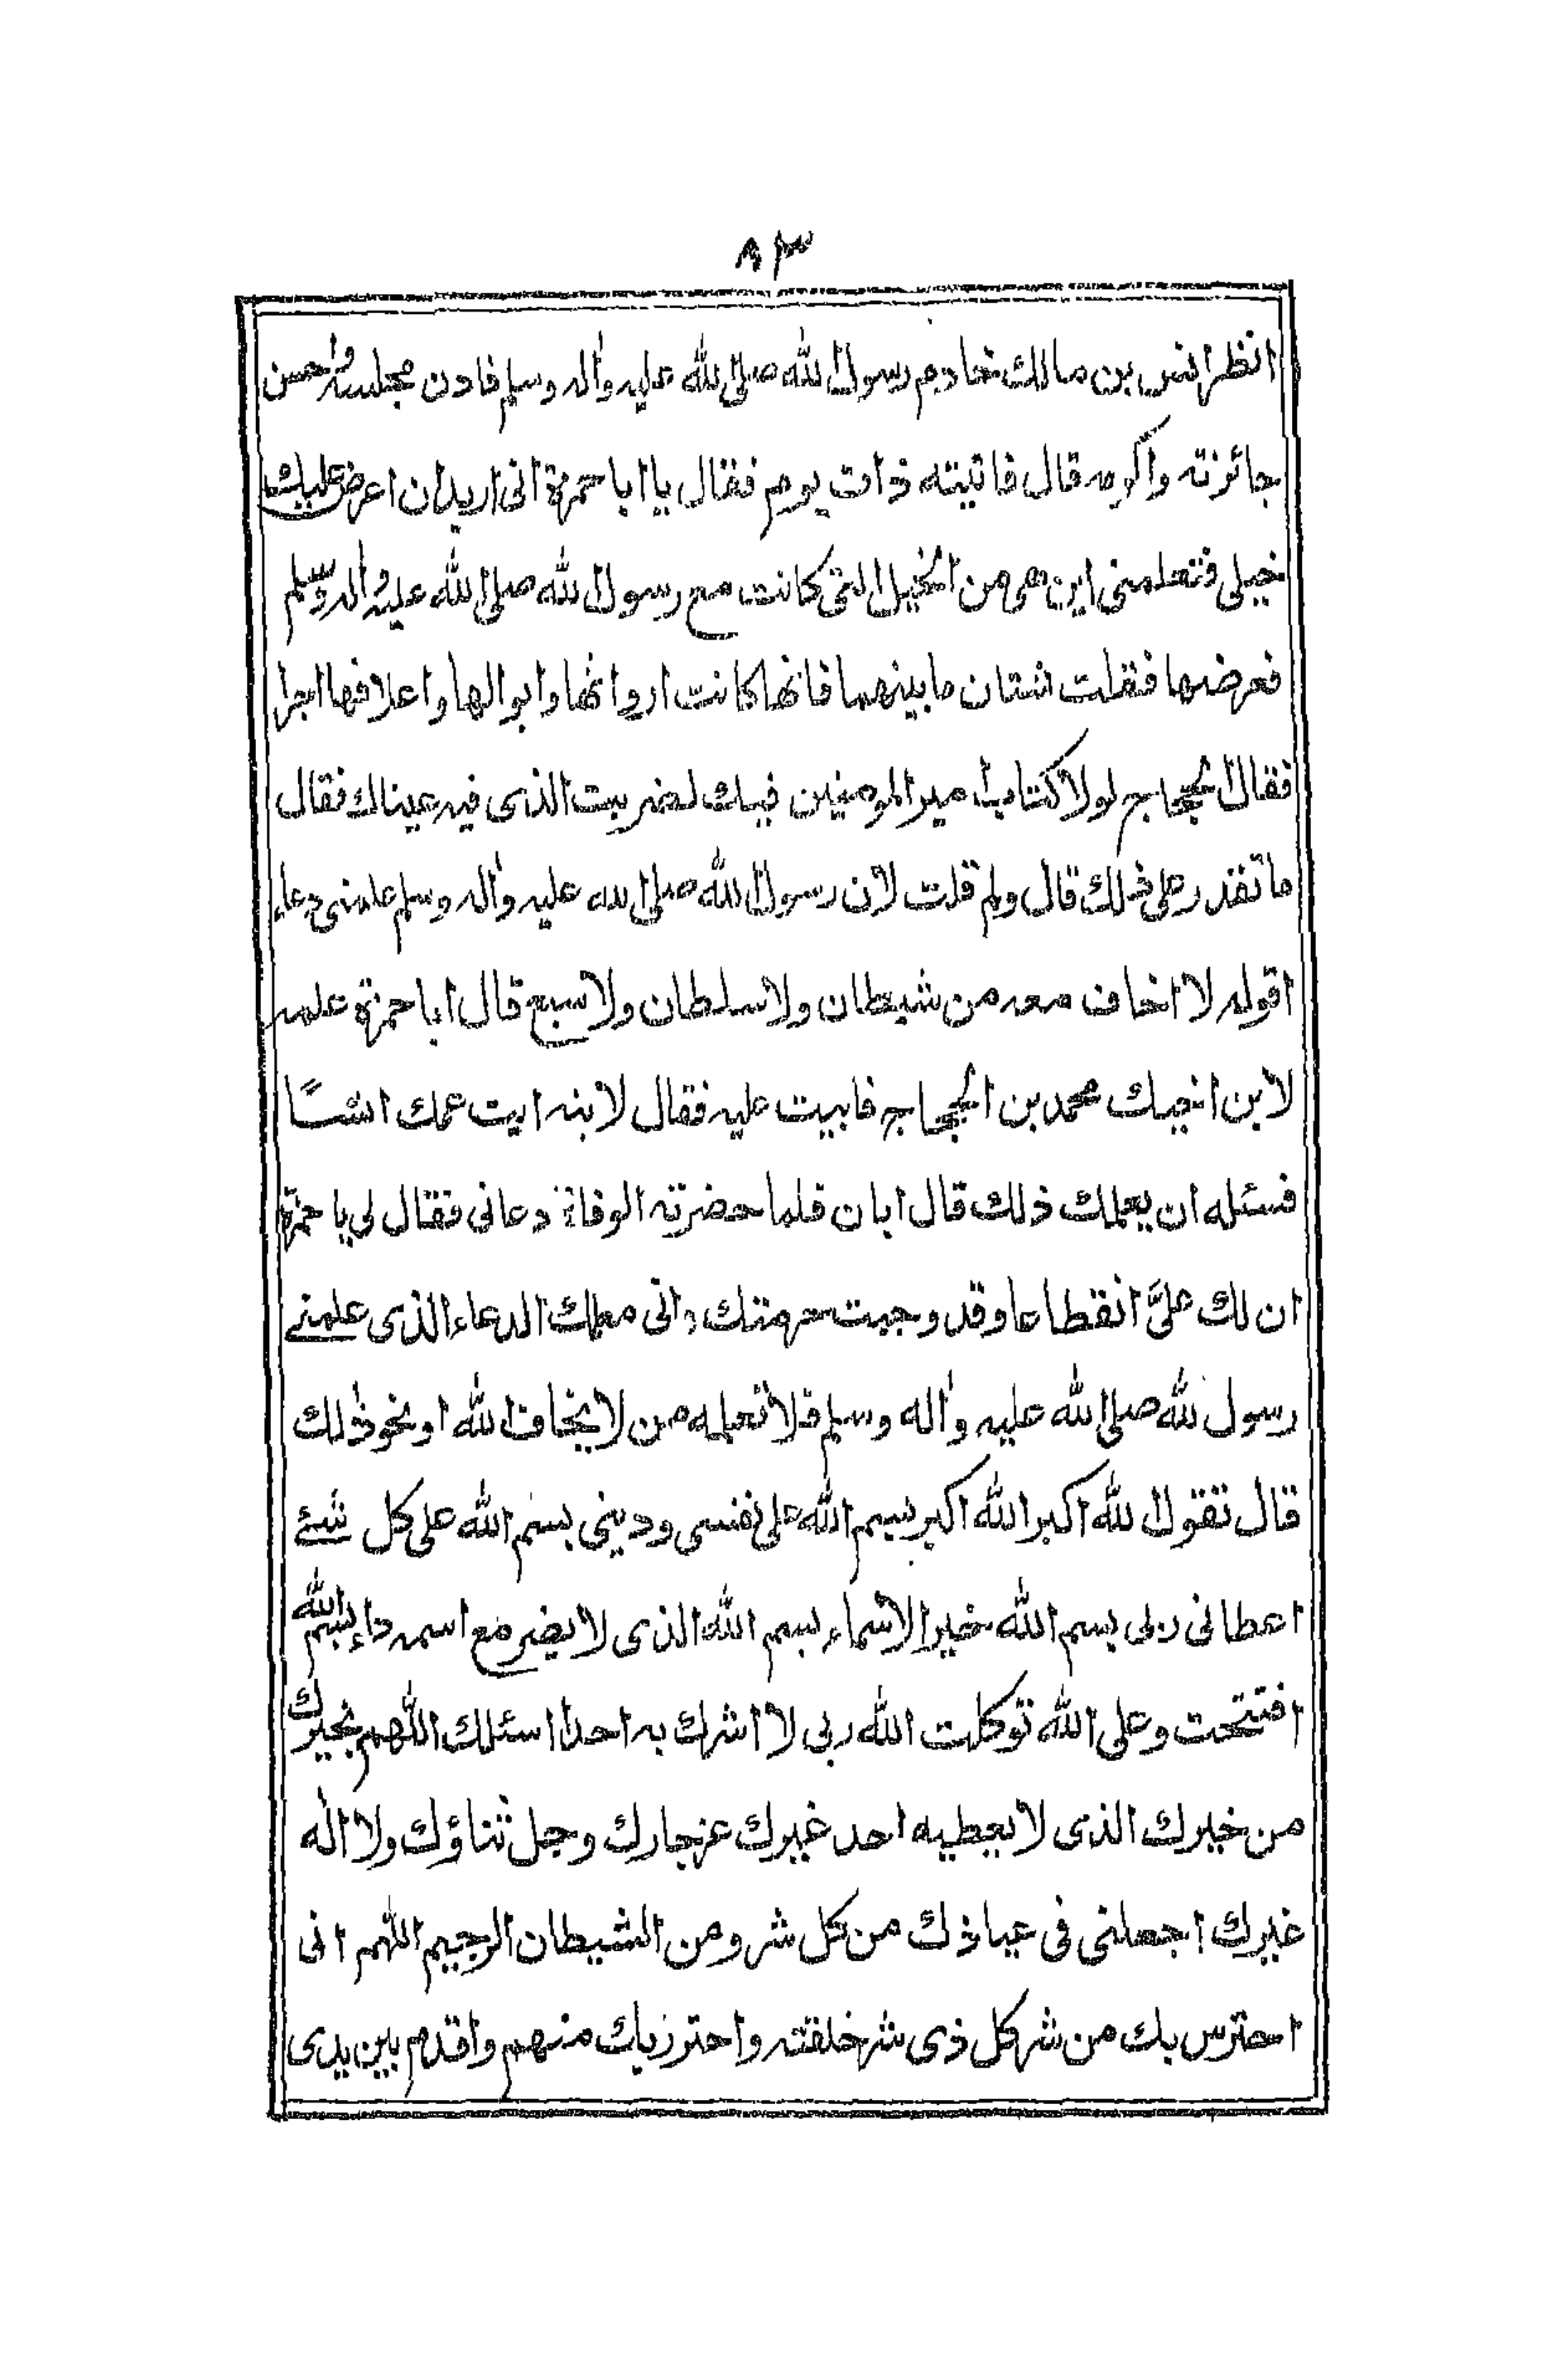 ٨٣
انظر انس بن مالك خادم رسول الله صلى الله عليه واٰله وسلم فادن مجلسه واحسن
جائزته واكرمه قال فاتيته ذات يوم فقال يا ابا حمزة انى اريد ان اعرض عليك
خيلى فتعلمنى اين هى من الخيل التى كانت مع رسول الله صلى الله عليه واٰله وسلم
فعرضها فقلت شتان ما بينهما فانها كانت ارواثها وابوالها واعلافها اجرا
فقال الحجاج لولا كتاب امير المومنين فيك لضربت الذى فيه عيناك فقال
ما تقدر على ذلك قال ولم قلت لان رسول الله صلى الله عليه واٰله وسلم علمنى دعاء
اقوله لا اخاف معه من شيطان ولا سلطان ولا سبع قال ابا حمزة علمه
لابن اخيك محمد بن الحجاج فابيت عليه فقال لابنه ايت عمك انسًا
فسئله ان يعلمك ذلك قال ابان فلما حضرته الوفاة دعانى فقال لى يا حمزة
ان لك علىَّ انقطاعا وقد وجبت حرمتك وانى معلمك الدعاء الذى علمنے
رسول الله صلى الله عليه واٰله وسلم فلا تعلمه من لا يخاف الله او نحو ذٰلك
قال تقول الله اكبر الله اكبر بسم الله على نفسى ودينى بسم الله على كل شئے
اعطانى ربى بسم الله خير الاسماء بسم الله الذى لا يضر مع اسمه داء بسم الله
افتتحت وعلى الله توكلت الله ربى لا اشرك به احدا اسئلك اللهم بخيرك
من خيرك الذى لا يعطيه احد غيرك عز جارك وجل ثناؤك ولا اله
غيرك اجعلنى فى عياذك من كل شر ومن الشيطان الرجيم اللهم انى
احترس بك من شر كل ذى شر خلقته واحترز بك منهم واقدم بين يدى